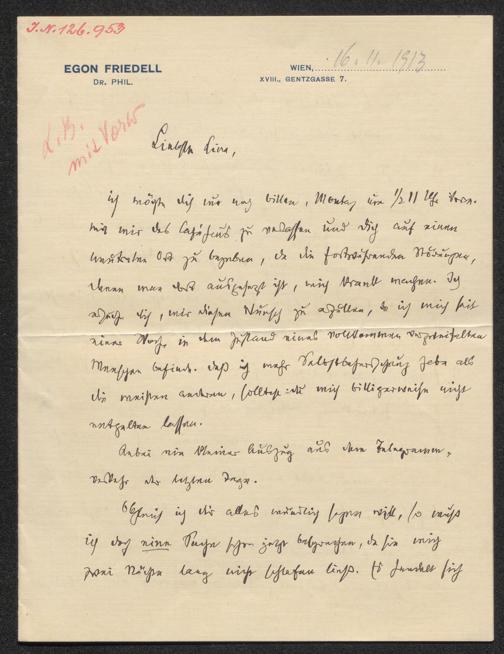 I.N. 126.953
EGON FRIEDELL
DR. PHIL.
WIEN, 16. 11. 1913
XVIII., GENTZGASSE 7.
Liebste Lina,
ich möchte dich nur noch bitten, Montag um 1/2 11 Uhr
mit mir das Cafehaus zu verlassen und dich auf einen
neutralen Ort zu begeben, da die fortwährenden Störungen,
denen man dort ausgesetzt ist, mich krank machen. Ich
ersuche dich, mir diesen Wunsch zu erfüllen, da ich mich seit
einer Woche in dem Zustand eines vollkommen verzweifelten
Menschen befinde. Daß ich mehr Selbstbeherrschung habe als
die meisten anderen, solltest du mich billigerweise nicht
entgelten lassen.
Anbei ein kleiner Auszug aus dem Telegramm-
verkehr der letzten Tage.
Obgleich ich dir alles mündlich sagen will, so muß
ich doch eine Sache schon jetzt besprechen, da sie mich
zwei Nächte lang nicht schlafen ließ. Es handelt sich